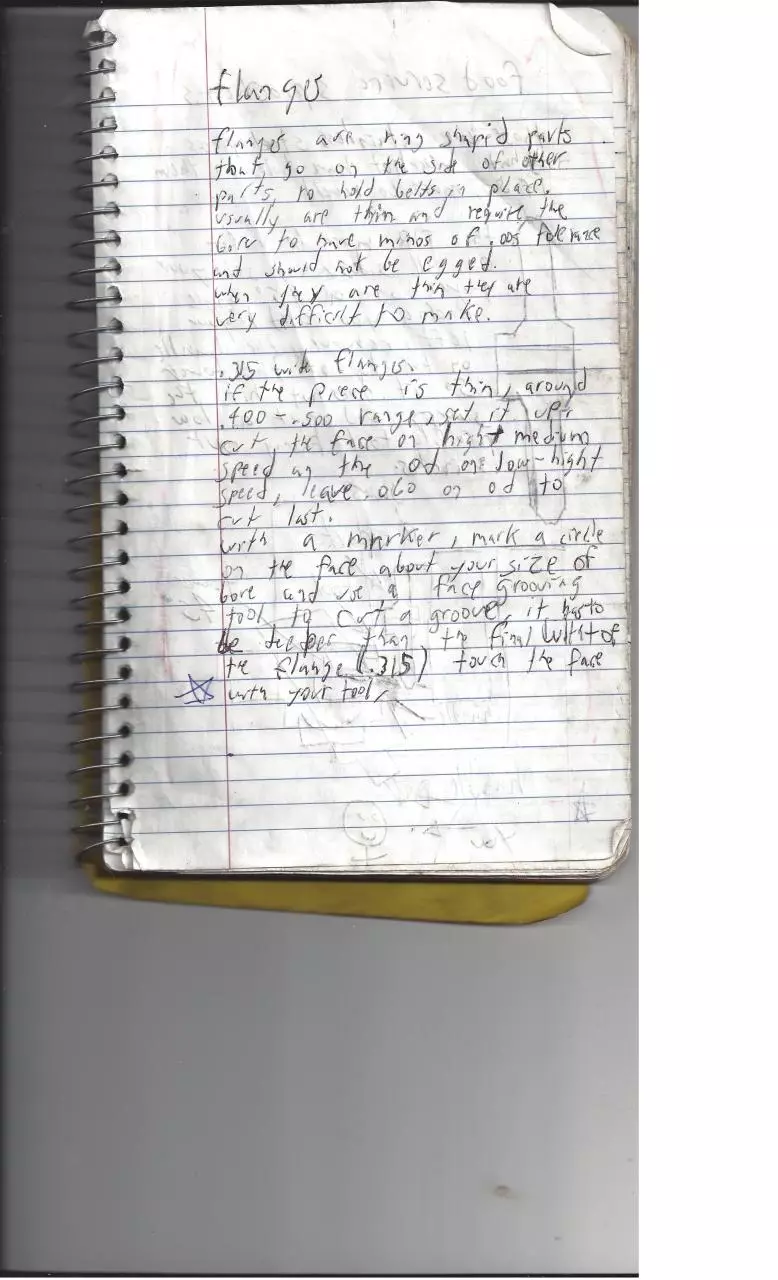 flanges
flanges are ring shapid parts
that go on the side of other
parts, to hold belts in place.
usually are thin and require the
bore to have minos of .005 tolerance
and should not be egged.
when they are thin they are
very difficilt to make.
.315 wide flanges.
if the piece is thin, around
.400 - .500 range, set it up,
cut, the face on hight medium
speed an the od one low-hight
speed, leave .060 on od to
cut last.
with a marker, mark a circle
on the face about your size of
bore and use a face grooving
tool to cut a groove, it has to
be deeper than the final witht of
te flange (.315) touch the face
with your tool,